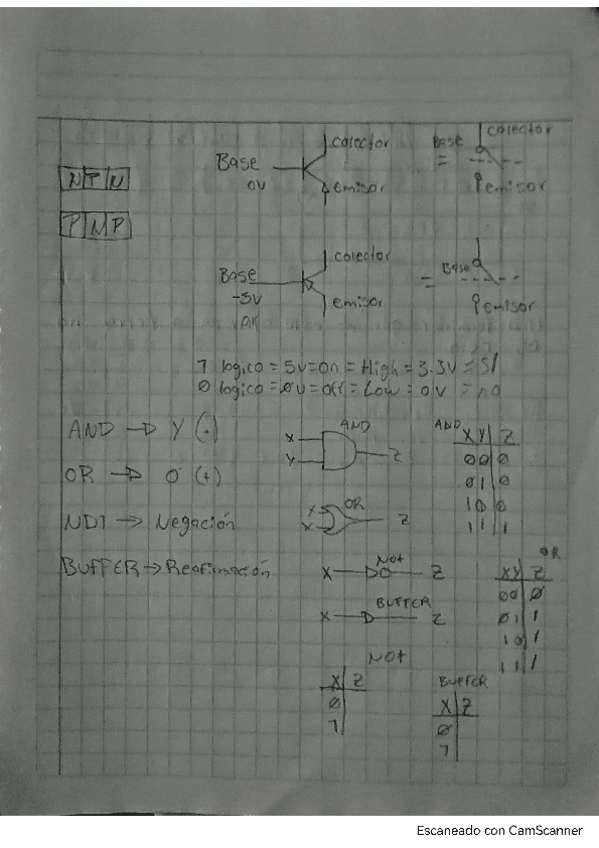 colector
Base
0V
emisor
Base
=
colector
emisor
N T N
P N P
colector
Base
-5V
emisor
=
Base
emisor
1 logico = 5v = on = High = 3.3V = SI
0 logico = 0v = off = Low = 0V = no
AND → Y (·)
OR → O (+)
NOT → Negación
BUFFER → Reafirmación
AND
X
Y
Z
OR
X
X
Z
Not
X Z
BUFFER
X Z
AND
X Y Z
0 0 0
0 1 0
1 0 0
1 1 1
OR
X Y Z
0 0 0
0 1 1
1 0 1
1 1 1
Not
X Z
0
1
BUFFER
X Z
0
1
Escaneado con CamScanner